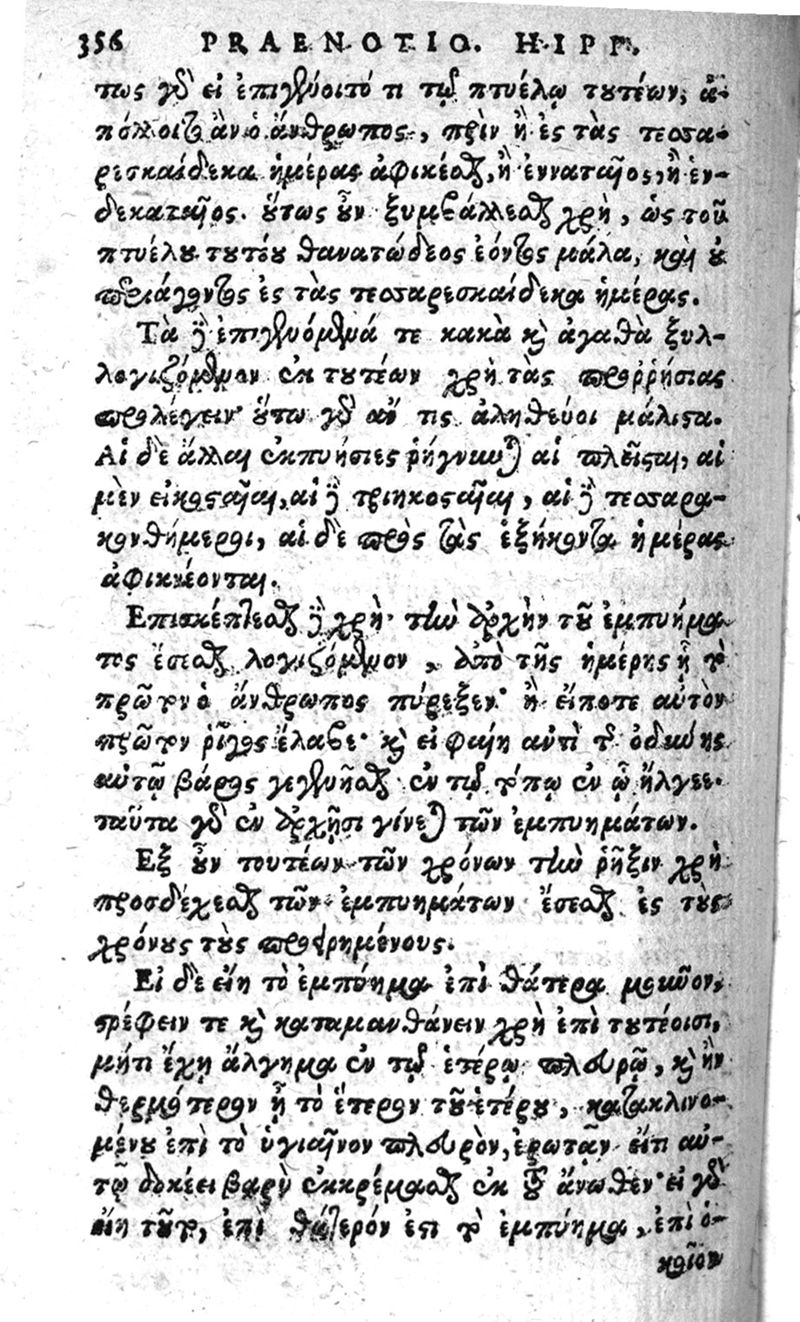 356 PRAENOTIO. HIPP.
πως γδ̀ εἰ ἐπιγλύοιτό τι τῷ πτυέλῳ τουτέων, ἀ-
πόλλοιτ ἂν ὁ ἄνθρωπος, πρὶν ἢ ἐς τὰς τεσσα-
ρεσκαίδεκα ἡμέρας ἀφικέσθαι, ἢ ἐνναταῖος, ἢ ἑν-
δεκαταῖος. οὕτως οὖν ξυμβάλλεσθαι χρὴ, ὡς τοῦ
πτυέλου τουτέου θανατώδεος ἐόντος μάλα, καὶ οὐ
περιάγοντος ἐς τὰς τεσσαρεσκαίδεκα ἡμέρας.
Τὰ δὲ ἐπιγενόμενά τε κακὰ καὶ ἀγαθὰ ξυλ-
λογιζόμενον ἐκ τουτέων χρὴ τὰς προῤῥήσιας
προλέγειν· οὕτω γὰρ ἄν τις ἀληθεύοι μάλιστα.
Αἱ δὲ ἄλλαι ἐκπυήσιες ῥήγνυνται αἱ πλεῖσται, αἱ
μὲν εἰκοσταῖαι, αἱ δὲ τριηκοσταῖαι, αἱ δὲ τεσσαρα-
κονθήμεροι, αἱ δὲ πρὸς τὰς ἑξήκοντα ἡμέρας
ἀφικνέονται.
Επισκέπτεσθαι δὲ χρὴ· τὴν ἀρχὴν τοῦ ἐμπυήμα-
τος ἔσεσθαι λογιζόμενον, ἀπὸ τῆς ἡμέρης ᾗ τὸ
πρῶτον ὁ ἄνθρωπος πύρεξεν· ἢ εἴποτε αὐτὸν
πρῶτον ῥῖγος ἔλαβε· καὶ εἰ φαίη ἀντὶ τῆς ὀδύνης
αὐτῷ βάρος γεγενῆσθαι ἐν τῷ τόπῳ ἐν ᾧ ἤλγεε.
ταῦτα γὰρ ἐν ἀρχῇσι γίνεται τῶν ἐμπυημάτων.
Εξ οὖν τουτέων τῶν χρόνων τὴν ῥῆξιν χρὴ
προσδέχεσθαι τῶν ἐμπυημάτων ἔσεσθαι ἐς τοὺς
χρόνους τοὺς προειρημένους.
Εἰ δὲ εἴη τὸ ἐμπύημα ἐπὶ θάτερα μοῦνον,
στρέφειν τε καὶ καταμανθάνειν χρὴ ἐπὶ τουτέοισι,
μήτι ἔχῃ ἄλγημα ἐν τῷ ἑτέρῳ πλευρῷ, καὶ ἢν
θερμότερον ᾖ τὸ ἕτερον τοῦ ἑτέρου, κατακλινο-
μένου ἐπὶ τὸ ὑγιαῖνον πλευρὸν, ἐρωτᾷν εἴτι αὐ-
τῷ δοκέει βαρὺ ἐκκρέμασθαι ἐκ τοῦ ἄνωθεν· εἰ γὰρ
εἴη τοῦτο, ἐπὶ θάτερόν ἐστι τὸ ἐμπύημα, ἐπὶ ὁ-
κοῖον